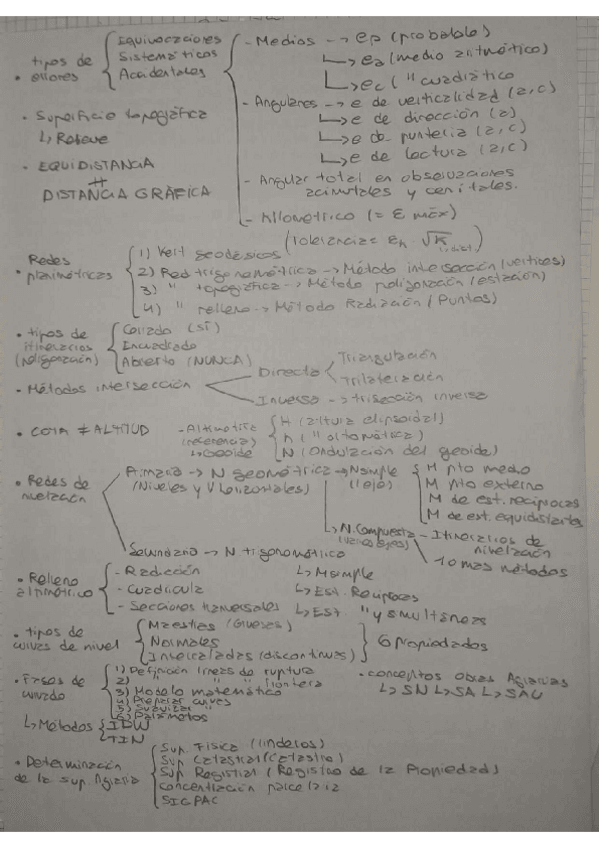 • tipos de errores { Equivocaciones
Sistemáticos
Accidentales
- Medios → ep (probable)
↳ ea (medio aritmético)
↳ ec ( " cuadrático
- Angulares → e de verticalidad (a,c)
↳ e de dirección (a)
↳ e de puntería (a,c)
↳ e de lectura (a,c)
- Angular total en observaciones
acimutales y cenitales.
- Kilométrico (= E máx)
(Tolerancia = εk · √K
• Superficie topográfica
↳ Relieve
- EQUIDISTANCIA
≠
DISTANCIA GRÁFICA
• Redes planimétricas { 1) Vert geodésicos
2) Red trigonométrica → Método intersección (vertices)
3) " topográfica → Método poligonación (estación)
4) " relleno → Método Radiación (Puntos)
• tipos de itinerarios (poligonación) { Cerrado (SÍ)
Encuadrado
Abierto (NUNCA)
- Métodos intersección
Directa { Triangulación
Trilateración
Inversa → trisección inversa
• COTA ≠ ALTITUD
- Altimetría (referencia)
↳ Geoide
{ H (altura elipsoidal)
h ( " ortométrica)
N (Ondulación del geoide)
• Redes de nivelación
Primaria → N geométrica → N simple
(Niveles y V horizontales)
(1 eje)
{ M pto medio
M pto externo
M de est. recíprocas
M de est. equidistantes
↳ N. Compuesta - Itinerarios de
nivelación
10 más métodos
Secundaria → N trigonométrica
↳ M simple
↳ Est. Recíprocas
↳ Est. " y simultáneas
• Relleno altimétrico { - Radiación
- Cuadrícula
- Secciones transversales
• tipos de curvas de nivel { Maestras (Gruesa)
Normales
Intercaladas (discontinuas) } 6 propiedades
• Fases de curvado { 1) Definición líneas de ruptura
2) " " " frontera
3) Modelo matemático
4) Preparar curvas
5) Suavizar "
6) Parámetros
↳ Métodos { IDW
TIN
• conceptos obras Agrarias
↳ SN ↳ SA ↳ SAU
• Determinación de la sup. Agraria { Sup. Física (linderos)
Sup Catastral (Catastro)
Sup Registral (Registro de la Propiedad)
concentración parcelaria
SIGPAC